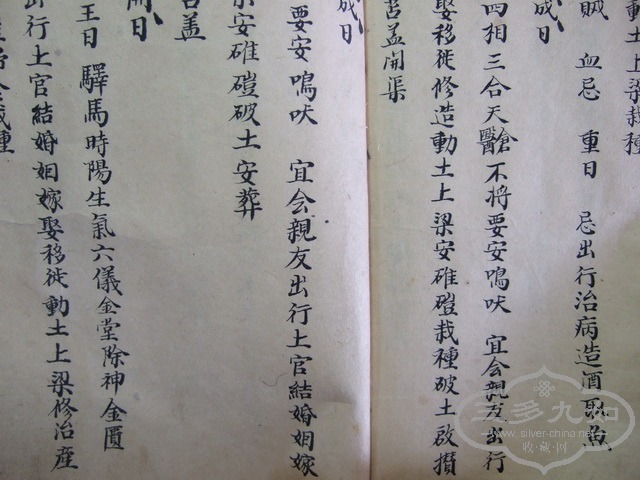 動土上梁栽種
賊 血忌 重日 忌出行治病造酒取魚
成日
四相 三合 天醫 不將 要安 鳴吠 宜会親友出行
娶移徙修造動土上梁安碓磑栽種破土啟攅
苫盖開渠
成日
要安 鳴吠 宜会親友出行上官結婚姻嫁
安碓磑破土安葬
苫盖
開日
王日 驛馬 時陽 生氣 六儀 金堂 除神 金匱
出行上官結婚姻嫁娶移徙動土上梁修治産
栽種
三多九如
www.silver-china.net
收·藏·网